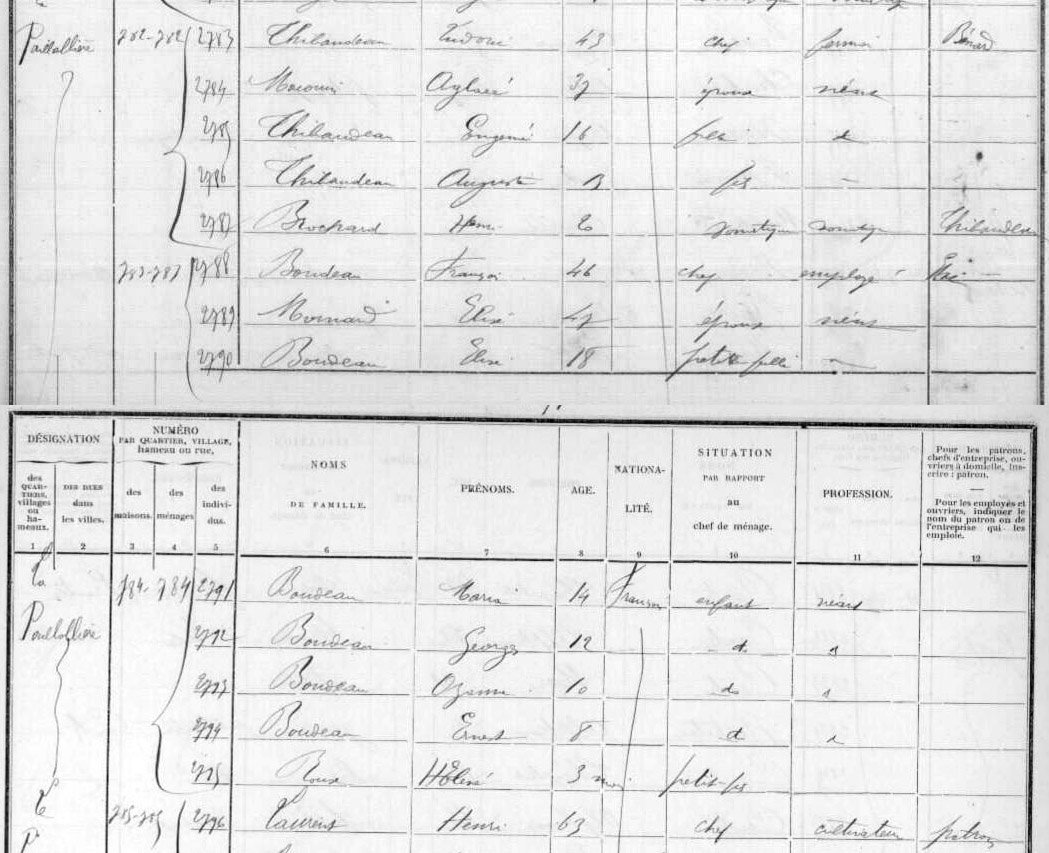 2783 Thibaudeau 43 chef fermier Bénard
2784 Aglaé 37 épouse néant
2785 Thibaudeau Eugénie 16 fille d
2786 Thibaudeau Auguste 13 fils -
2787 Brochard Henri domestique domestique Thibaudeau
783-783 2788 Boudeau François 46 chef employé
2789 Mornard Elise 47 épouse néant
2790 Boudeau Elise 18 petite fille -
DÉSIGNATION
des QUAR-TIERS, villages ou ha-meaux.
DES RUES dans les villes.
NUMÉRO
PAR QUARTIER, VILLAGE,
hameau ou rue,
des maisons.
des ménages
des indivi-dus.
NOMS
DE FAMILLE.
PRÉNOMS.
AGE.
NATIONA-
LITÉ.
SITUATION
PAR RAPPORT
au
chef de ménage.
PROFESSION.
Pour les patrons, chefs d'entreprise, ou-vriers à domicile, ins-crire : patron.
—
Pour les employés et ouvriers, indiquer le nom du patron ou de l'entreprise qui les emploie.
1 2 3 4 5 6 7 8 9 10 11 12
La 784-784 2791 Boudeau Maria 14 enfant néant
2792 Boudeau Georges 12 d d
2793 Boudeau 10 d d
2794 Boudeau Ernest 8 d d
2795 Roux 3 mois petit-fils
785-785 2796 Laurent Henri 63 chef cultivateur patron